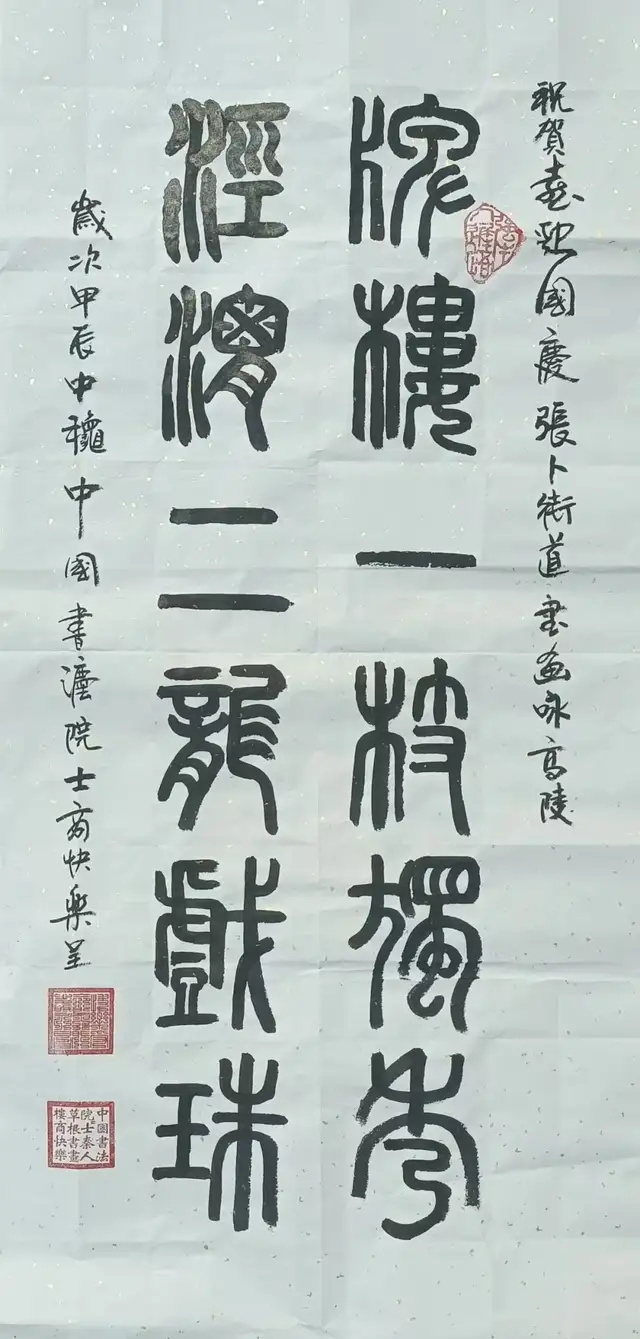 祝賀喜迎國慶張卜街道書畫咏高陵
樓一枝獨秀
涇渭二龍戲珠
歲次甲辰中龝中國書灋院士商快樂呈
中國書法
院士秦人
草根書畫
樓商快樂